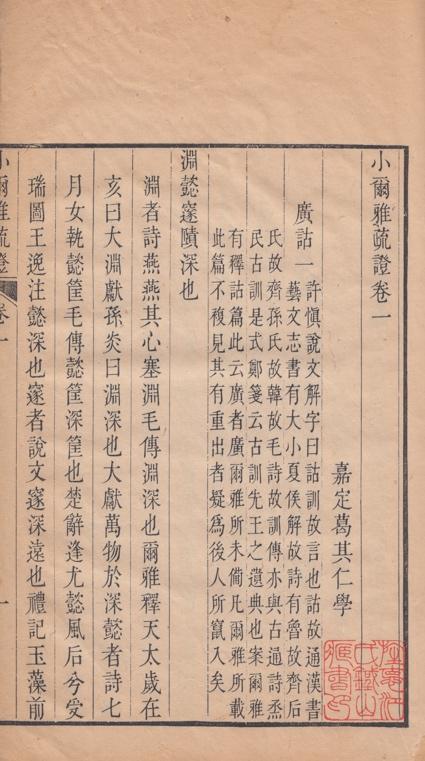 小爾雅疏證卷一
嘉定葛其仁學
廣詁一
許愼說文解字曰詁訓故言也詁故通漢書
藝文志書有大小夏矦解故詩有魯故齊后
氏故齊孫氏故韓故毛詩故訓傳亦與古通詩烝
民古訓是式鄭箋云古訓先王之遺典也案爾雅
有釋詁篇此云廣者廣爾雅所未僃凡爾雅所載
此篇不複見其有重出者疑爲後人所竄入矣
淵懿邃賾深也
淵者詩燕燕其心塞淵毛傳淵深也爾雅釋天太歲在
亥曰大淵獻孫炎曰淵深也大獻萬物於深懿者詩七
月女執懿筐毛傳懿筐深筐也楚辭逢尤懿風后兮受
瑞圖王逸注懿深也邃者說文邃深遠也禮記玉藻前
小爾雅疏證
卷一
一